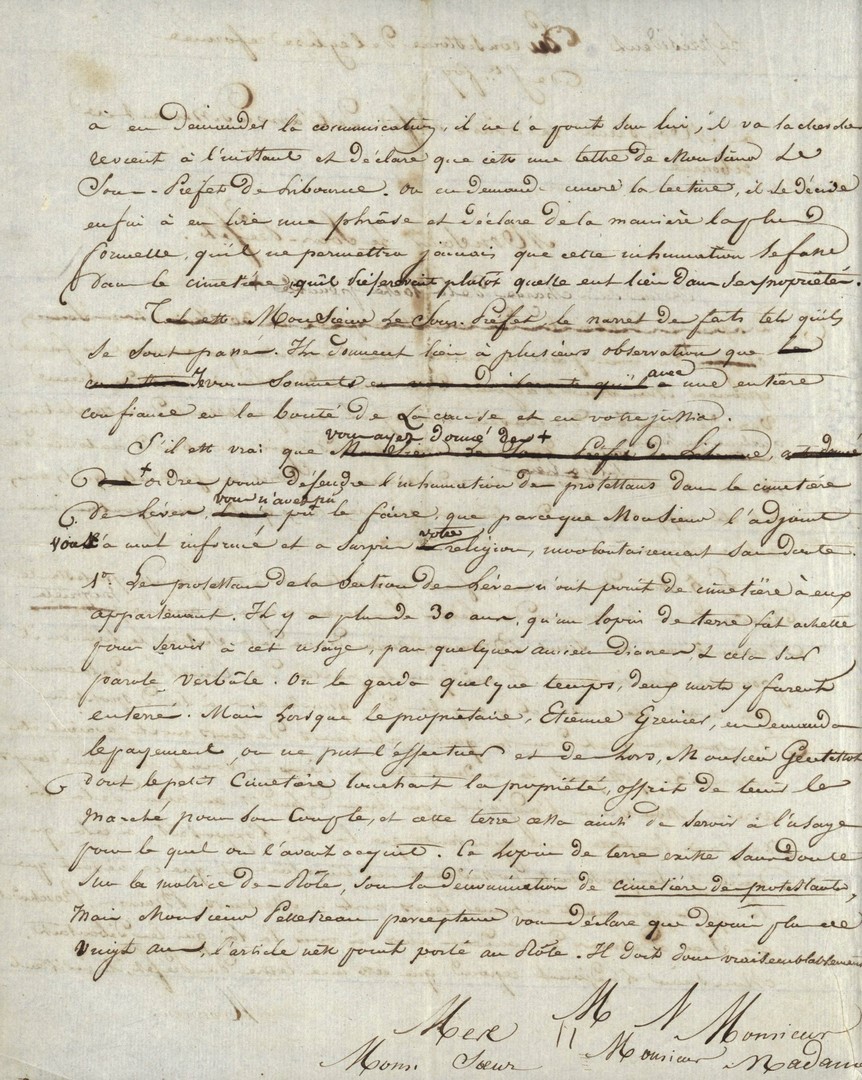 à en demander la communication, il ne l'a point sur lui, il va la chercher
revient à l'instant et déclare que cette une lettre de Monsieur Le
Sous-Préfet de Libourne. On en demande encore la lecture, il se décide
enfin à en lire une phrâse et déclare de la manière la plus
formelle, qu'il ne permettra jamais que cette inhumation se fasse
dans le cimetière, qu'il préfereroit plutôt qu'elle eut lieu dans ses propriétés.
Tel est Monsieur Le Sous-Préfet, le narret des faits tels qu'ils
se sont passés. Ils donnent lieu à plusieurs observations que
vous avec une entière
confiance en la bonté de La cause et en votre justice.
vous avez donné des +
S'il est vrai que Monsieur Le Sous Préfet de Libourne, ait donné
+ ordres pour défendre l'inhumation des protestans dans le cimetière
vous n'avez pu
de Lèves, pû le faire, que parceque Monsieur l'adjoint
vous l'a mal informé et a surpris votre religion, involontairement sans doute.
1º. Les protestans de la Section de Lèves n'ont point de cimetière à eux
appartenant. Il y a plus de 30 ans, qu'un lopin de terre fut achetté
pour servir à cet usâge, par quelques anciens diacres, & cela sur
parole verbâle. On le garda quelque temps, deux morts y furent
enterrés. Mais lorsque le propriétaire, Etienne Grenier, en demanda
le payement, on ne put l'effectuer et de lors, Monsieur
dont le petit Cimetière touchait la propriété, offrit de tenir le
marché pour son Compte, et cette terre cessa ainsi de servir à l'usage
pour le quel on l'avait acquit. Ce lopin de terre existe sans doute
sur la matrice de Rôle, sous la dénomination de cimetière des protestants,
Mais Monsieur Pellereau percepteur vous déclare que depuis plus de
vingt ans, l'article n'est point porté au Rôle. Il doit donc vraisemblablement
M N Monsieur
Mere 11 Monsieur Madame
Mons. Sœur